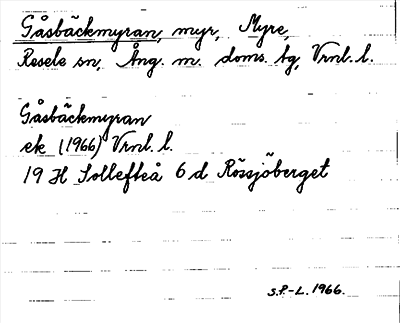 Gåsbäckmyran, myr, Myre,
Resele sn, Ång. m. doms. tg, Vrnl. l.
Gåsbäckmyran
ek (1966) Vrnl. l.
19 H Sollefteå 6 d Rössjöberget
S.P-L. 1966.